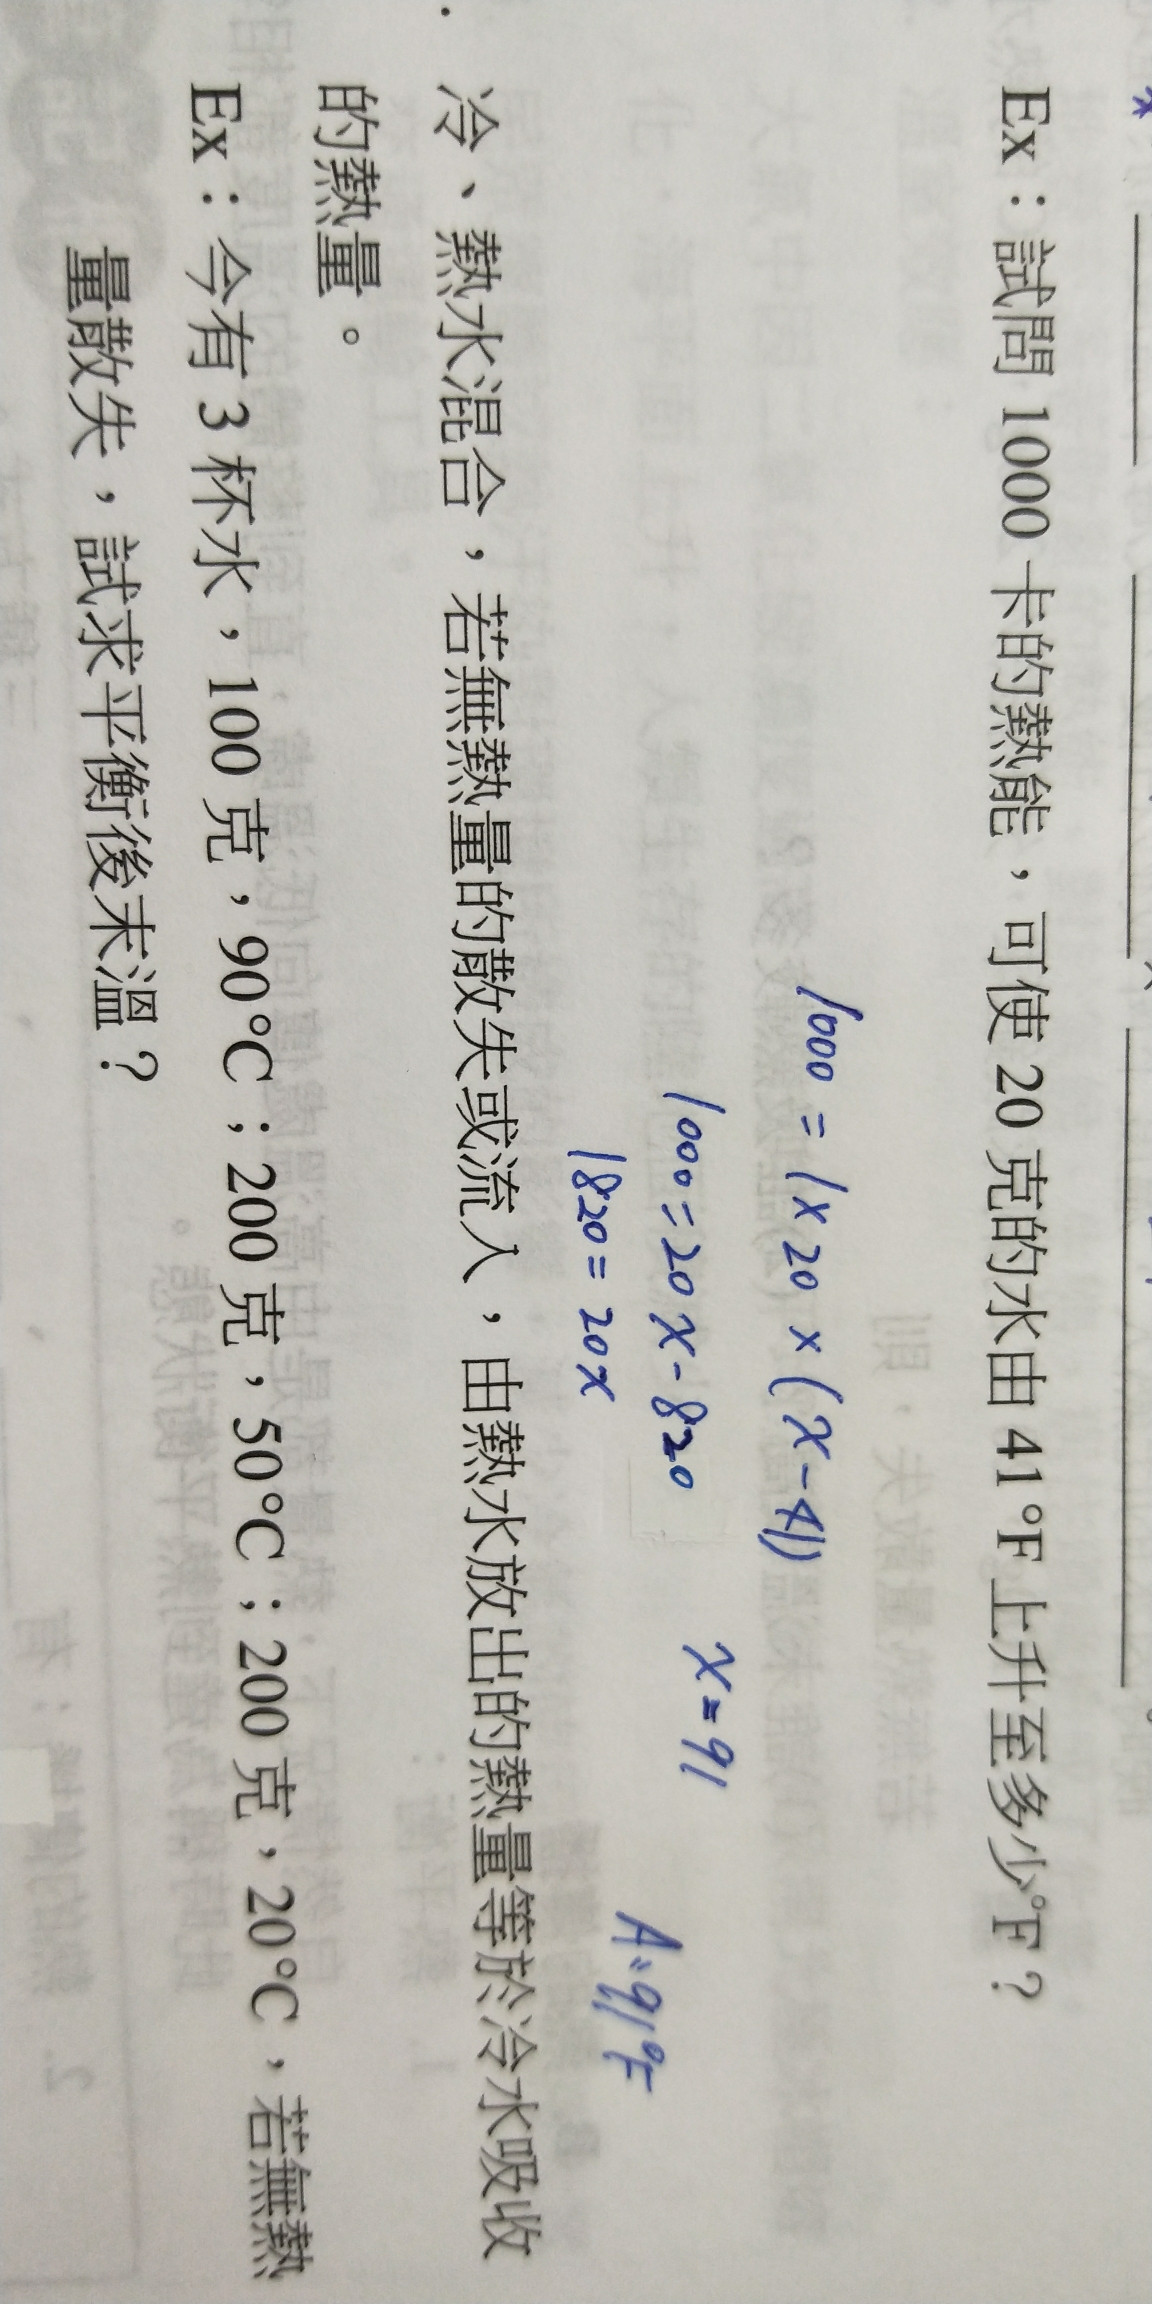 Ex：試問 1000 卡的熱能，可使 20 克的水由 41°F 上升至多少°F？
1000 = 1 x 20 x (x-41)
1000 = 20x - 820
x = 91
1820 = 20x
A: 91°F
冷、熱水混合，若無熱量的散失或流入，由熱水放出的熱量等於冷水吸收
的熱量。
Ex：今有 3 杯水，100 克，90°C；200 克，50°C；200 克，20°C，若無熱
量散失，試求平衡後末溫？